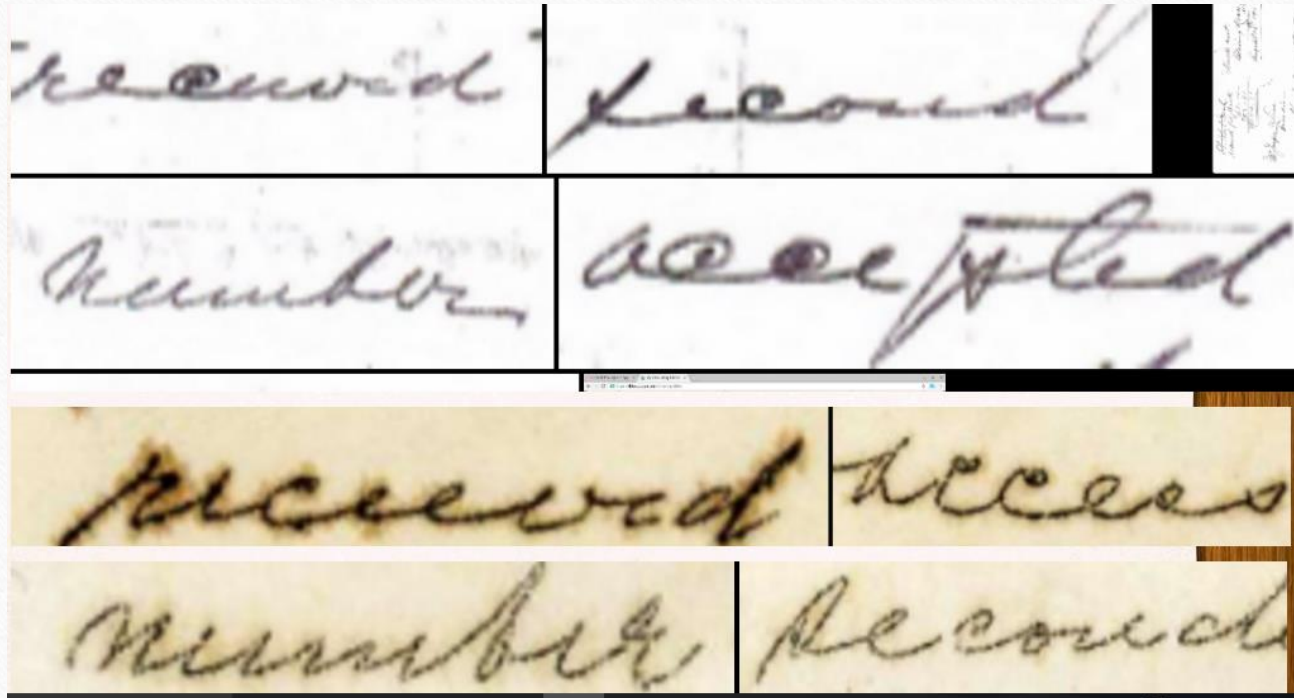 received second
number accepted
received access
number second